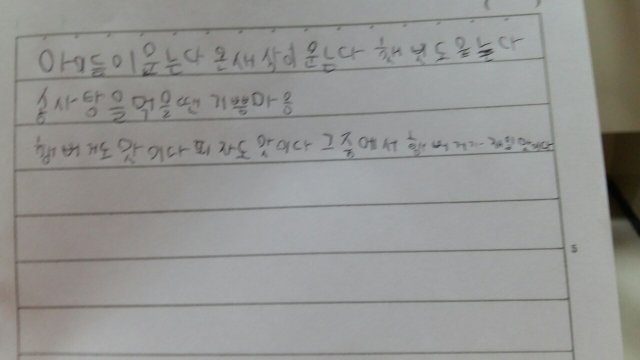 아이들이웃는다 온새상이웃는다 햇빛도웃는다
솜사탕을먹을땐 기쁨마음
햄버거도 맛이다 피자도 맛이다 그중에서 햄버거가 제일 맛이다
5